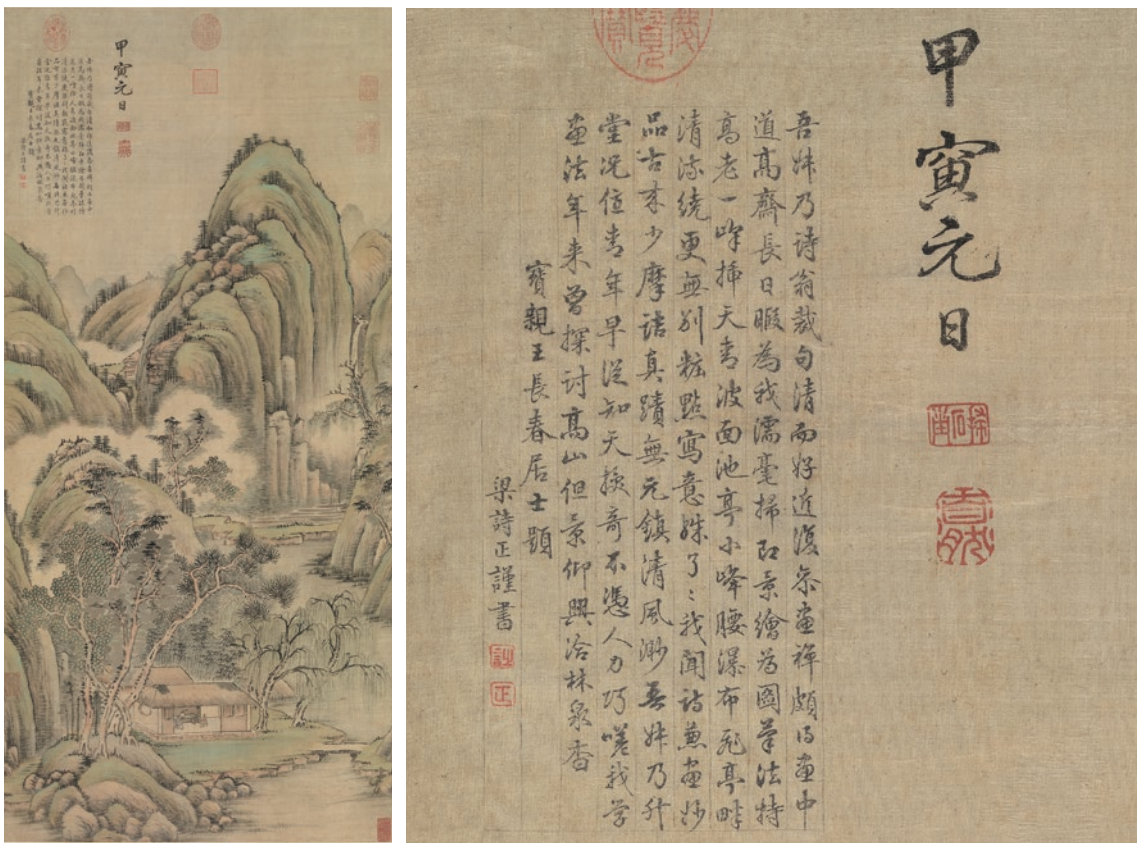 甲寅元日
吾叔乃詩翁裁句清而好近復參畫禪頗得畫中
道高齋長日暇為我濡毫掃即景繪為圖筆法特
高老一峰插天青波面池亭小峰腰瀑布飛亭畔
清流繞更無别粧點寫意殊了〻我聞詩兼畫妙
品古来少摩詰真蹟無元鎮清風渺吾叔乃升
堂况值青年早從知天授奇不憑人力巧嗟我学
畫法年来曾探討高山但景仰興洽林泉杳
寶親王長春居士題
梁詩正謹書
詩
正